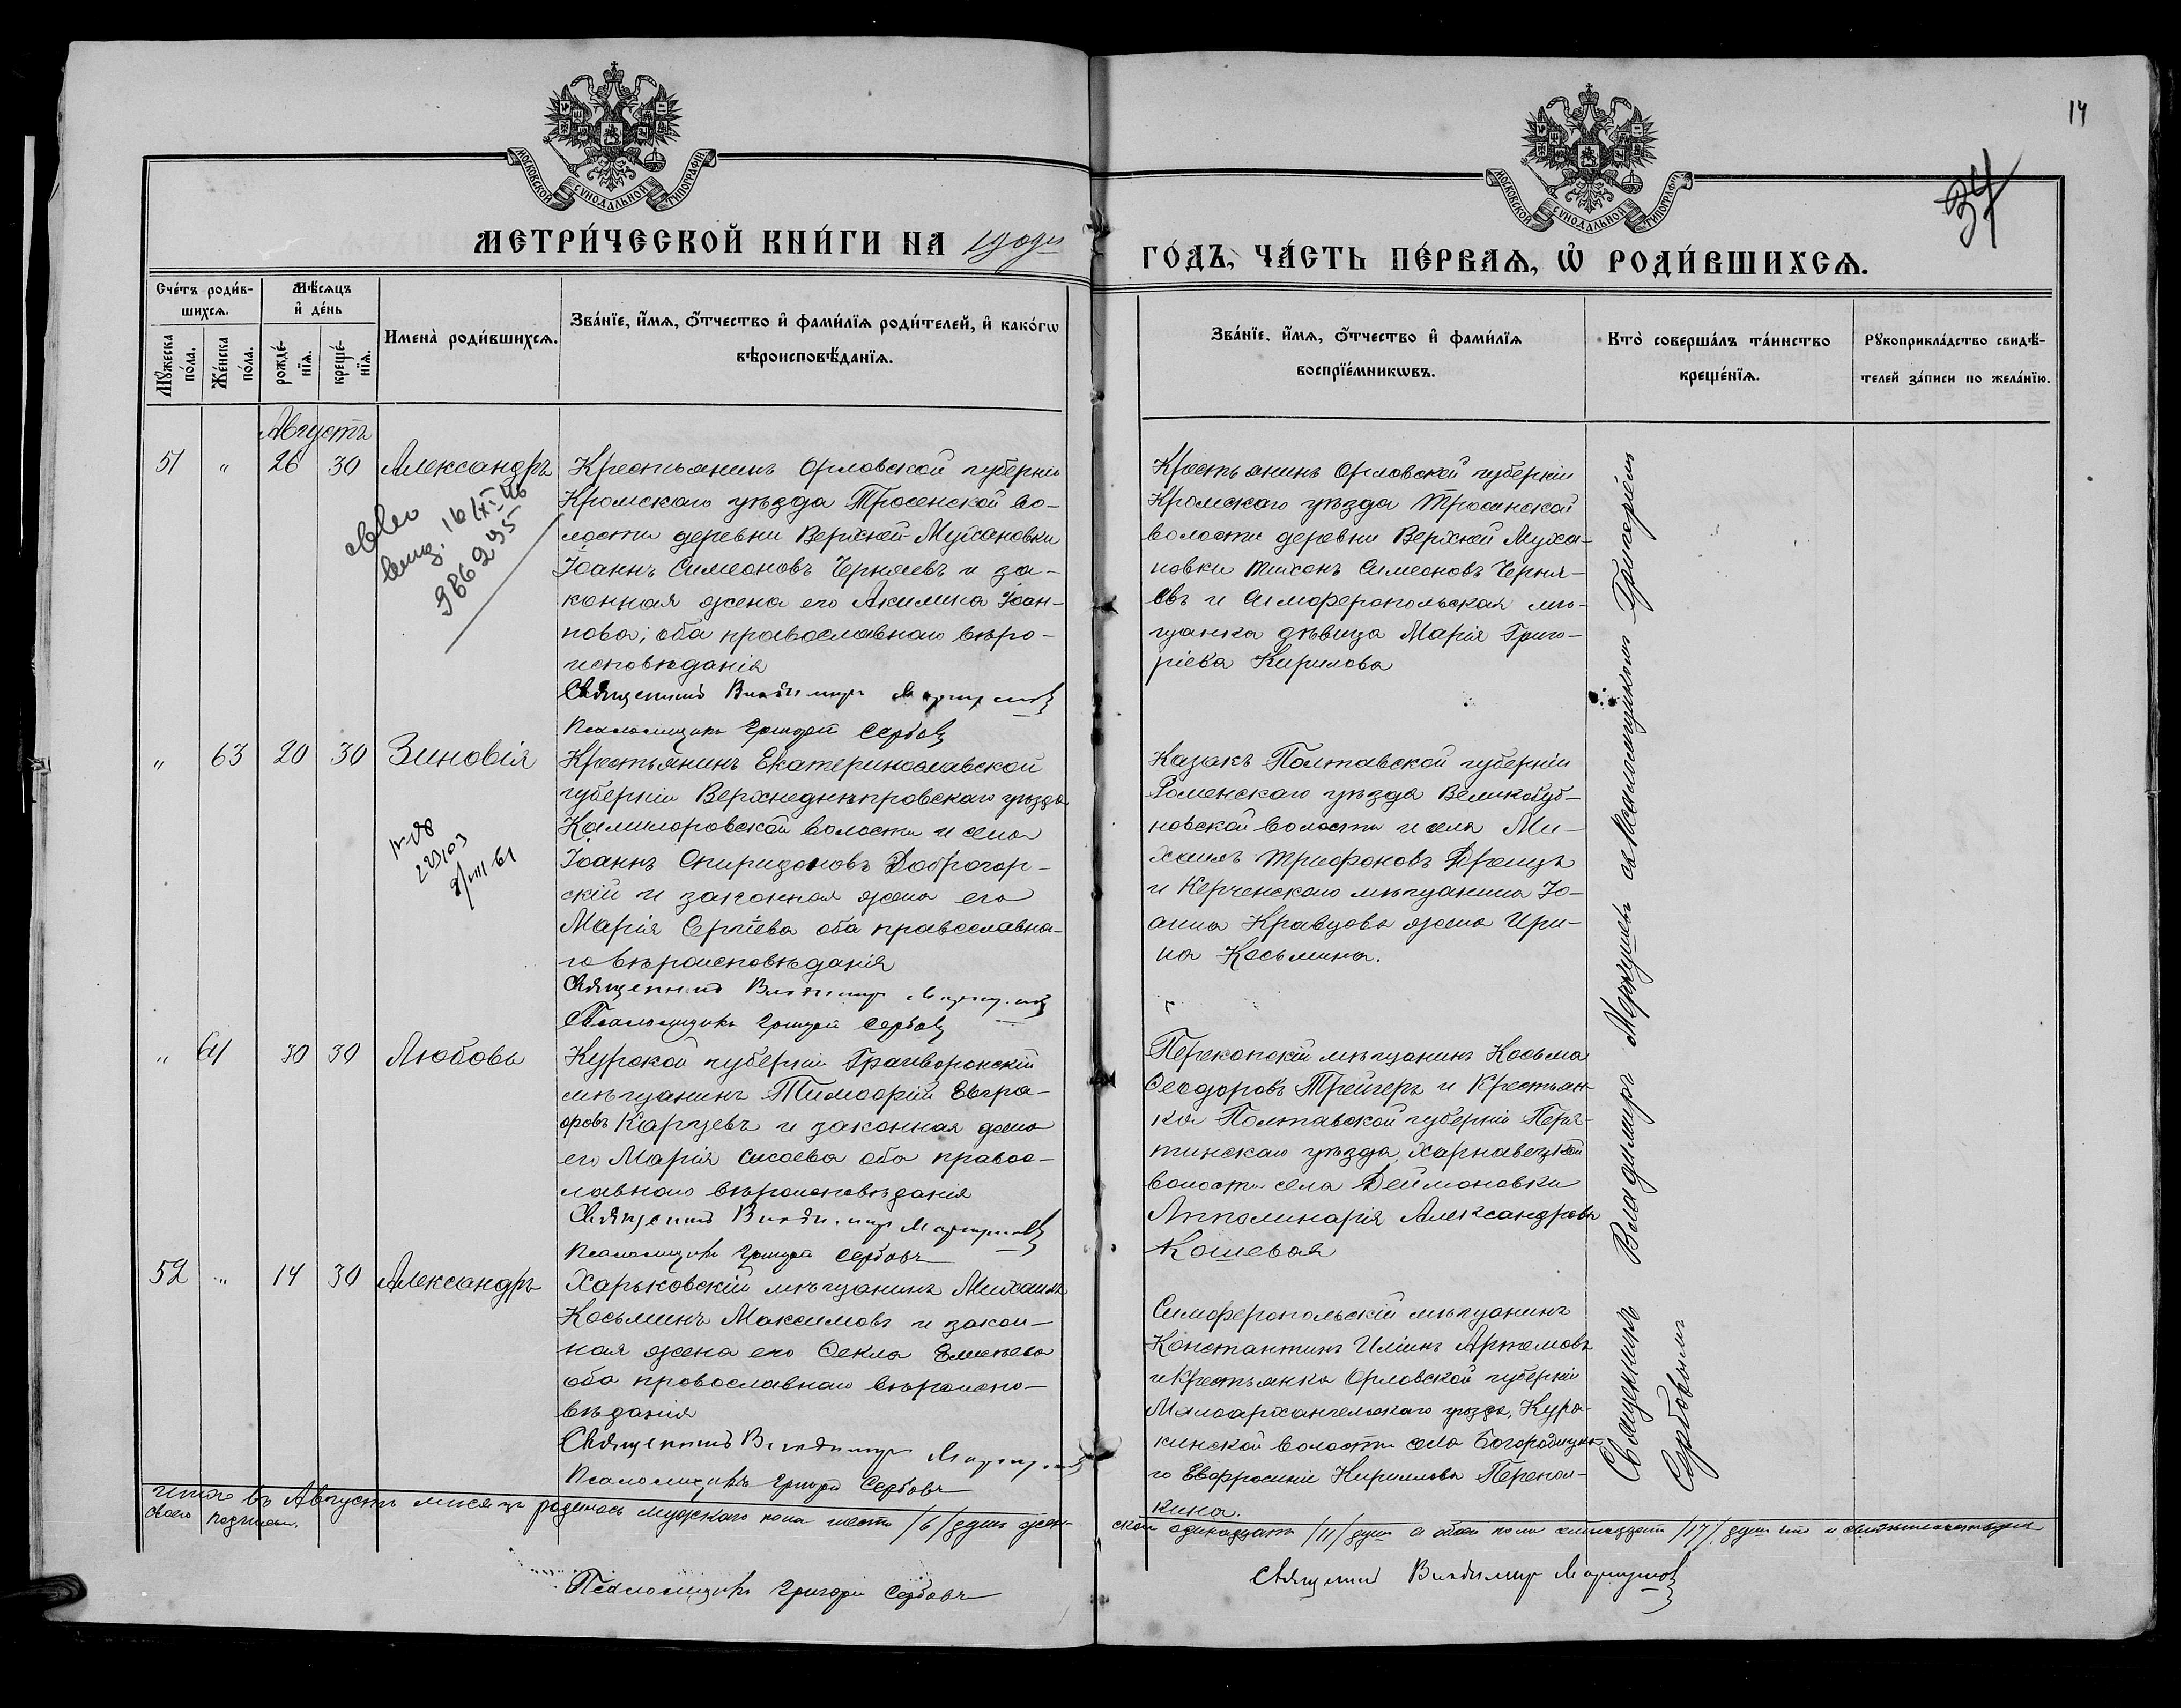 14
34
МОСКОВСКОЙ СѴНОДАЛЬНОЙ ТИПОГРАФІИ
МЕТРИ́ЧЕСКОЙ КНИ́ГИ НА
МОСКОВСКОЙ СѴНОДАЛЬНОЙ ТИПОГРАФІИ
ГО́ДЪ, ЧА́СТЬ ПЕ́РВАѦ, Ѡ҆ РОДИ́ВШИХСѦ.
Сче́тъ роди́в-
шихсѧ.
Мꙋ́жеска по́ла.
Же́нска по́ла.
Мѣ́сѧцъ
и҆ де́нь
рожде́-нїѧ.
креще́-нїѧ.
Имена̀ роди́вшихсѧ.
Зва́нїе, и҆́мѧ, ѻ҆́тчество и҆ фами́лїѧ роди́телей, и҆ како́гѡ
вѣроисповѣ́данїѧ.
Зва́нїе, и҆́мѧ, ѻ҆́тчество и҆ фами́лїѧ
воспрїе́мникѡвъ.
Кто̀ соверша́лъ та́инство
креще́нїѧ.
Рꙋкоприкла́дство свидѣ́-
телей за́писи по жела́нїю.
Августъ
51 " 26 30 Александръ
986295
Крестьянинъ Орловской губерніи
Кромскаго уѣзда Тросенской во-
лости деревни Верхней-Мухановки
Іоаннъ Симеоновъ Черняевъ и за-
конная жена его Акилина Іоан-
нова; оба православнаго вѣро-
исповѣданія
Священникъ Владимиръ Меркушевъ
Псаломщикъ Григорій Сербовъ
Крестьянинъ Орловской губерніи
Кромскаго уѣзда Тросанской
волости деревни Верхней Муха-
новки Тихонъ Симеоновъ Черня-
евъ и Симферопольская мѣ-
щанка дѣвица Марія Григо-
ріева Кирилова
" 63 20 30 Зиновія
Крестьянинъ Екатеринославской
губерніи Верхнеднѣпровскаго уѣзда
волости и села
Іоаннъ Спиридоновъ Доброгор-
скій и законная жена его
Марія Сергіева оба православна-
го вѣроисповѣданія
Священникъ Владимиръ Меркушевъ
Псаломщикъ Григорій Сербовъ
Казакъ Полтавской губерніи
Роменскаго уѣзда Великобуб-
новской волости и села Ми-
хаилъ Трифоновъ
и Керченскаго мѣщанина Іо-
анна Кравцова жена Ири-
на Косьмина.
" 64 30 30 Любовь
Курской губерніи Грайворонскій
мѣщанинъ Тимофей Евгра-
фовъ Карпевъ и законная жена
его Марія Сысоева оба правос-
лавнаго вѣроисповѣданія
Священникъ Владимиръ Меркушевъ
Псаломщикъ Григорій Сербовъ
Перекопскій мѣщанинъ Косьма
Ѳеодоровъ Трейгеръ и Крестьян-
ка Полтавской губерніи Пиря-
тинскаго уѣзда, Харнавецкой
волости села Деймоновки
Апполинарія Александрова
Кошевая
52 " 14 30 Александръ
Харьковскій мѣщанинъ Михаилъ
Косьминъ Максимовъ и закон-
ная жена его Ѳекла
оба православнаго вѣроиспо-
вѣданія
Священникъ Владимиръ Меркушевъ
Псаломщикъ Григорій Сербовъ
Симферопольскій мѣщанинъ
Константинъ Ильинъ Артемовъ
и Крестьянка Орловской губерніи
Малоархангельскаго уѣзда, Кура-
кинской волости села Богородицка-
го Евфросинія Кириллова Перепел-
кина.
Священникъ Владимиръ Меркушевъ съ Псаломщикомъ Григоріемъ
Сербовымъ
Итого въ Августѣ мѣсяцѣ родилось мужскаго пола шесть /6/ душъ жен-
скаго одинадцать /11/ душъ а обоего пола семнадцать /17/ душъ что и
своею подписью.
Псаломщикъ Григорій Сербовъ
Священникъ Владимиръ Меркушевъ